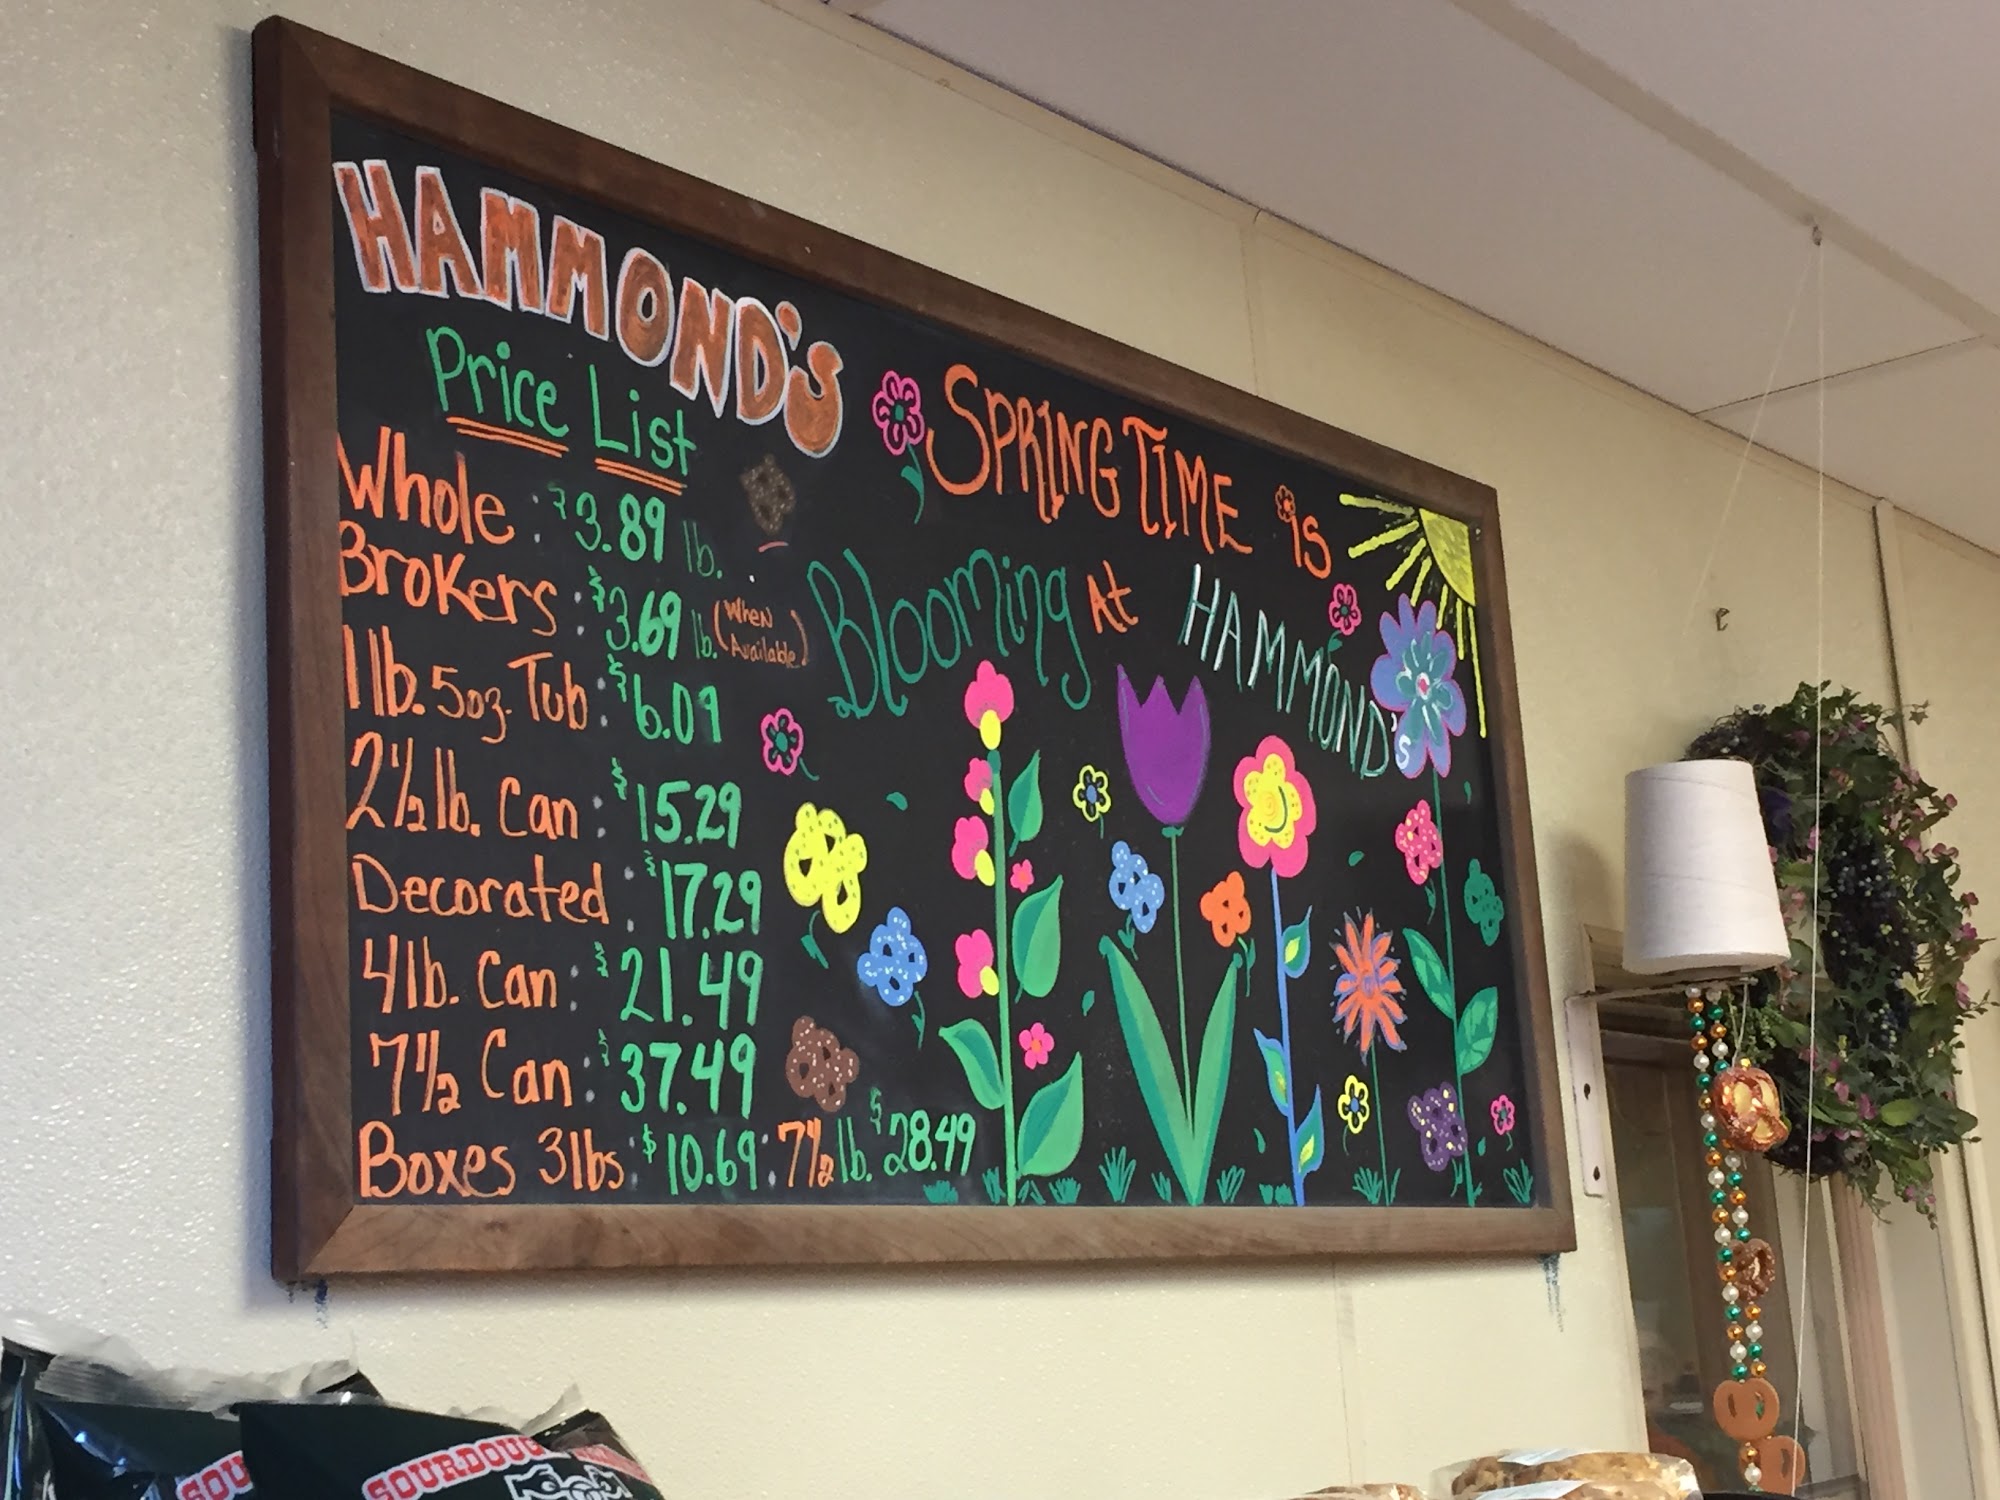 HAMMOND'S
Price List
Whole : $3.89 lb.
Brokers : $3.69 lb. (When Available)
1 lb. 5oz. Tub : $6.09
2 1/2 lb. Can : $15.29
Decorated : $17.29
4 lb. Can : $21.49
7 1/2 Can : $37.49
Boxes 3 lbs : $10.69 : 7 1/2 lb. $28.49
SPRING TIME is
Blooming At HAMMOND'S
SOURDOUGH